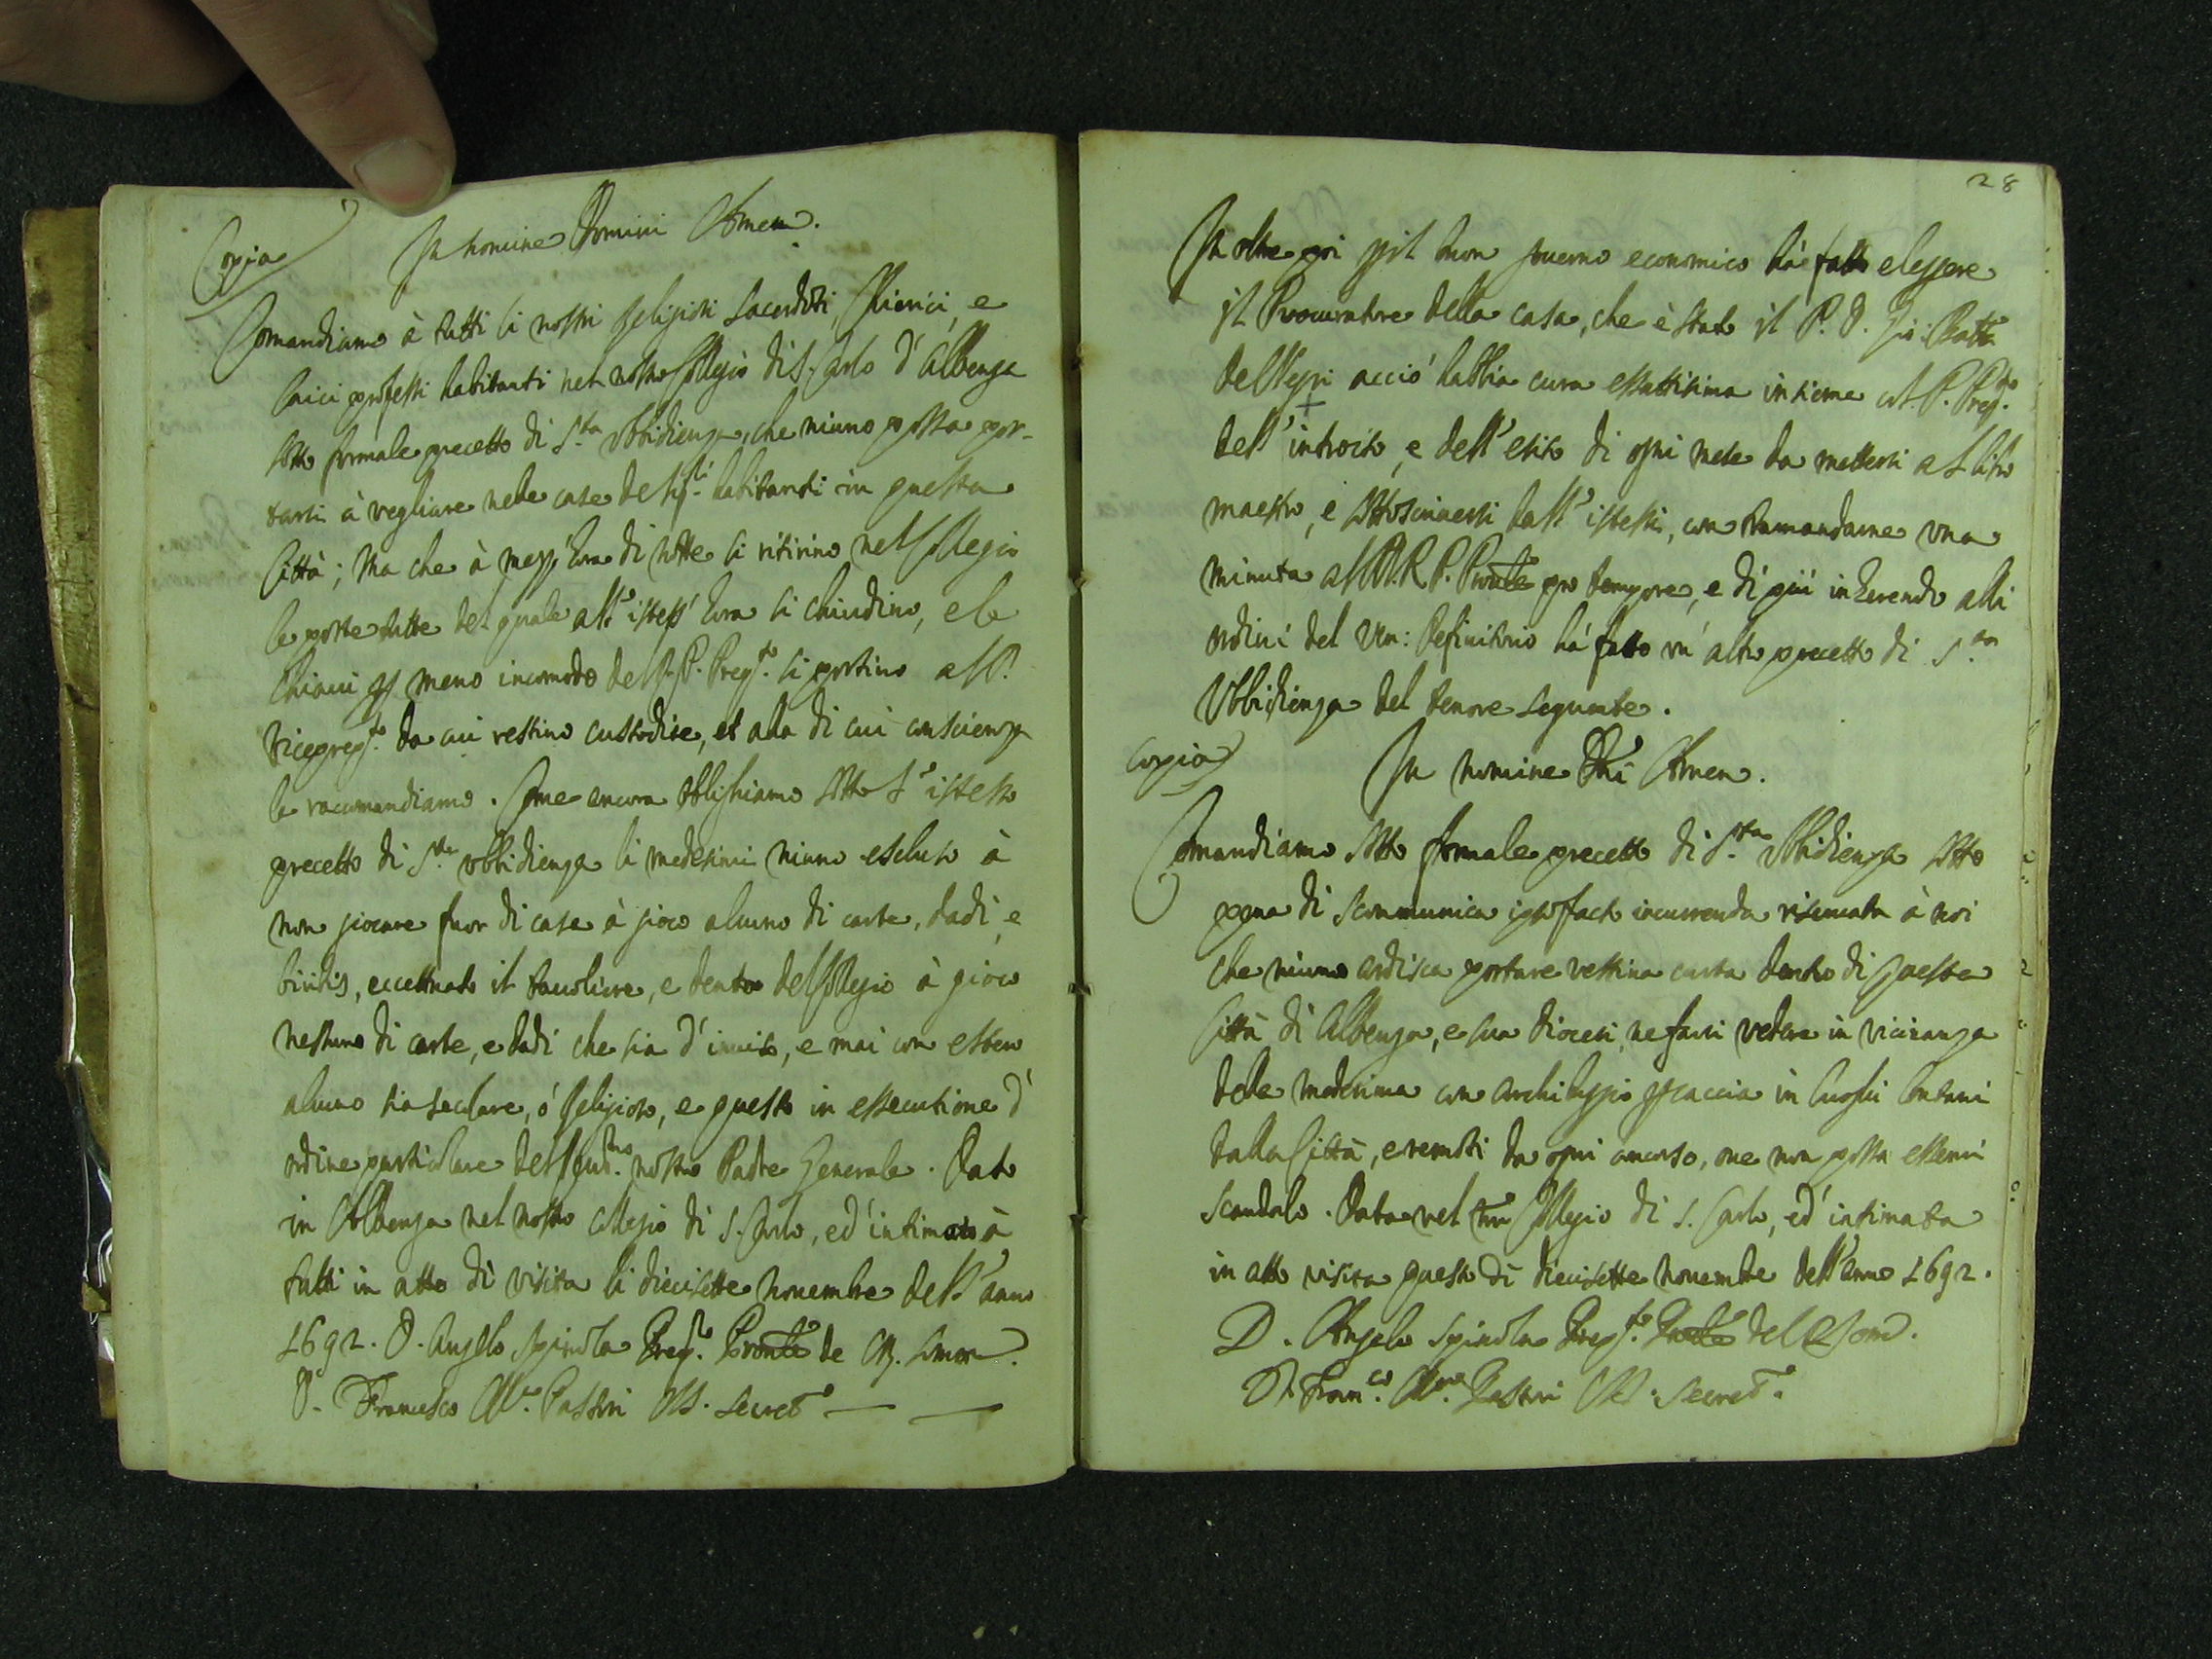 Copia
In nomine Domini Amen.
Comandiamo à tutti li nostri Religiosi Sacerdoti, Chierici, e
laici professi habitanti nel nostro Collegio di S. Carlo d'Albenga
sotto formale precetto di S.ta Ubbidienza, che niuno possa por-
tarsi à vegliare nelle case de Sig.ri habitanti in questa
Città; Ma che à mezz'hora di notte si ritirino nel Collegio
le porte tutte del quale all'istess'hora si chiudino, e le
chiavi per meno incomodo del P. Prep.to si portino al P.
Viceprep.to da cui restino custodite, et alla di cui conscienza
le raccomandiamo. Come ancora oblighiamo sotto l'istesso
precetto di S.ta ubbidienza li medesimi niuno escluso à
non giocare fuor di casa à gioco alcuno di carte, dadi, e
biribis, eccettuato il tavoliere, e dentro del Collegio à gioco
nessuno di carte, e dadi che sia d'invito, e mai con estero
alcuno sia secolare, ó Religioso, e questo in essecutione d'
ordine particolare del nostro Padre Generale. Dato
in Albenga nel nostro Collegio di S. Carlo, ed'intimato à
tutti in atto di visita li diecisette novembre dell'anno
1692. D. Angelo Spinola Prep.to Pronle de
D. Francesco M.a Passini Secret.o
28
In oltre poi per il buon governo economico há fatto eleggere
il Procuratore della casa, che è stato il P. D. Gio: Batta
Dell'Epri acció habbia cura essattissima insieme col P. Prep.to
dell'introito, e dell'esito di ogni mese da mettersi al libro
maestro, e sottoscriversi dall'istessi, con tramandarne una
minuta al M.R.P. Pronle pro tempore, e di piú inherendo alli
ordini del Ven: Definitorio há fatto un'altro precetto di S.ta
Ubbidienza del tenore seguente.
Copia
In nomine Dni Amen.
Comandiamo sotto formale precetto di S.ta Ubbidienza sotto
pena di scommunica ipso facto incurrenda riservata à noi
che niuno ardisca portare vestina curta dentro di questa
Città di Albenga, e sua diocesi, ne farsi vedere in vicinanza
della medesima con archibuggio per caccia in luoghi lontani
dalla Città, e remoti da ogni concorso, ove non possa esservi
scandalo. Data nel Collegio di S. Carlo, ed'intimata
in atto visita questo di diecisette novembre dell'anno 1692.
D. Angelo Spinola Prep.to Pronle
D. Fran.co M.a Passini Secret.o